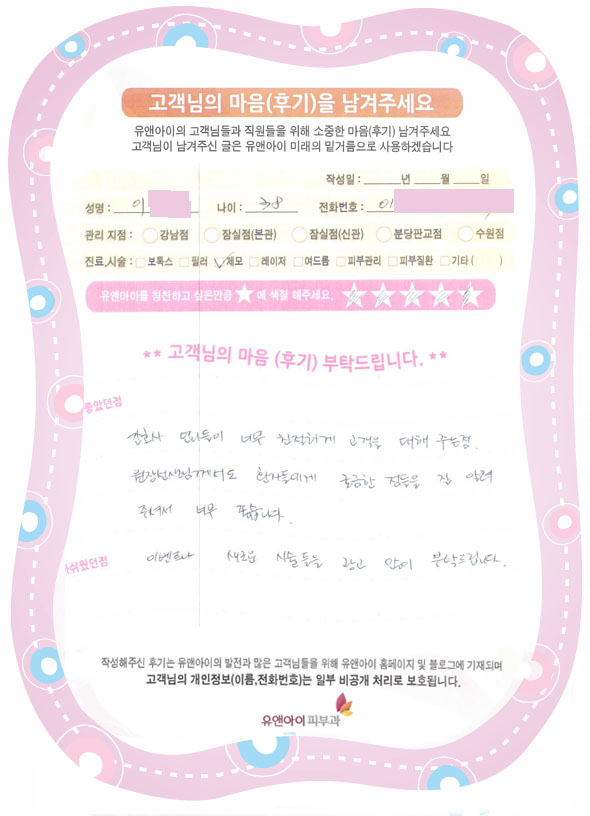 고객님의 마음(후기)을 남겨주세요
유앤아이의 고객님들과 직원들을 위해 소중한 마음(후기) 남겨주세요
고객님이 남겨주신 글은 유앤아이 미래의 밑거름으로 사용하겠습니다
작성일 : ____년 ____월 ____일
성명 : 이 나이 : 38 전화번호 : 01
관리 지점 : 강남점 잠실점(본관) 잠실점(신관) 분당판교점 수원점
진료,시술 : 보톡스 필러 제모 레이저 여드름 피부관리 피부질환 기타 ( )
유앤아이를 칭찬하고 싶은만큼 ★ 에 색칠 해주세요. ★★★★★
** 고객님의 마음 (후기) 부탁드립니다. **
좋았던점
간호사 언니들이 너무 친절하게 고객을 대해 주는점.
원장선생님께서도 환자들에게 궁금한 점들을 잘 알려
주셔서 너무 좋습니다.
아쉬웠던점
이벤트나 새로운 시술들을 광고 많이 부탁드립니다.
작성해주신 후기는 유앤아이의 발전과 많은 고객님들을 위해 유앤아이 홈페이지 및 블로그에 기재되며
고객님의 개인정보(이름,전화번호)는 일부 비공개 처리로 보호됩니다.
유앤아이피부과